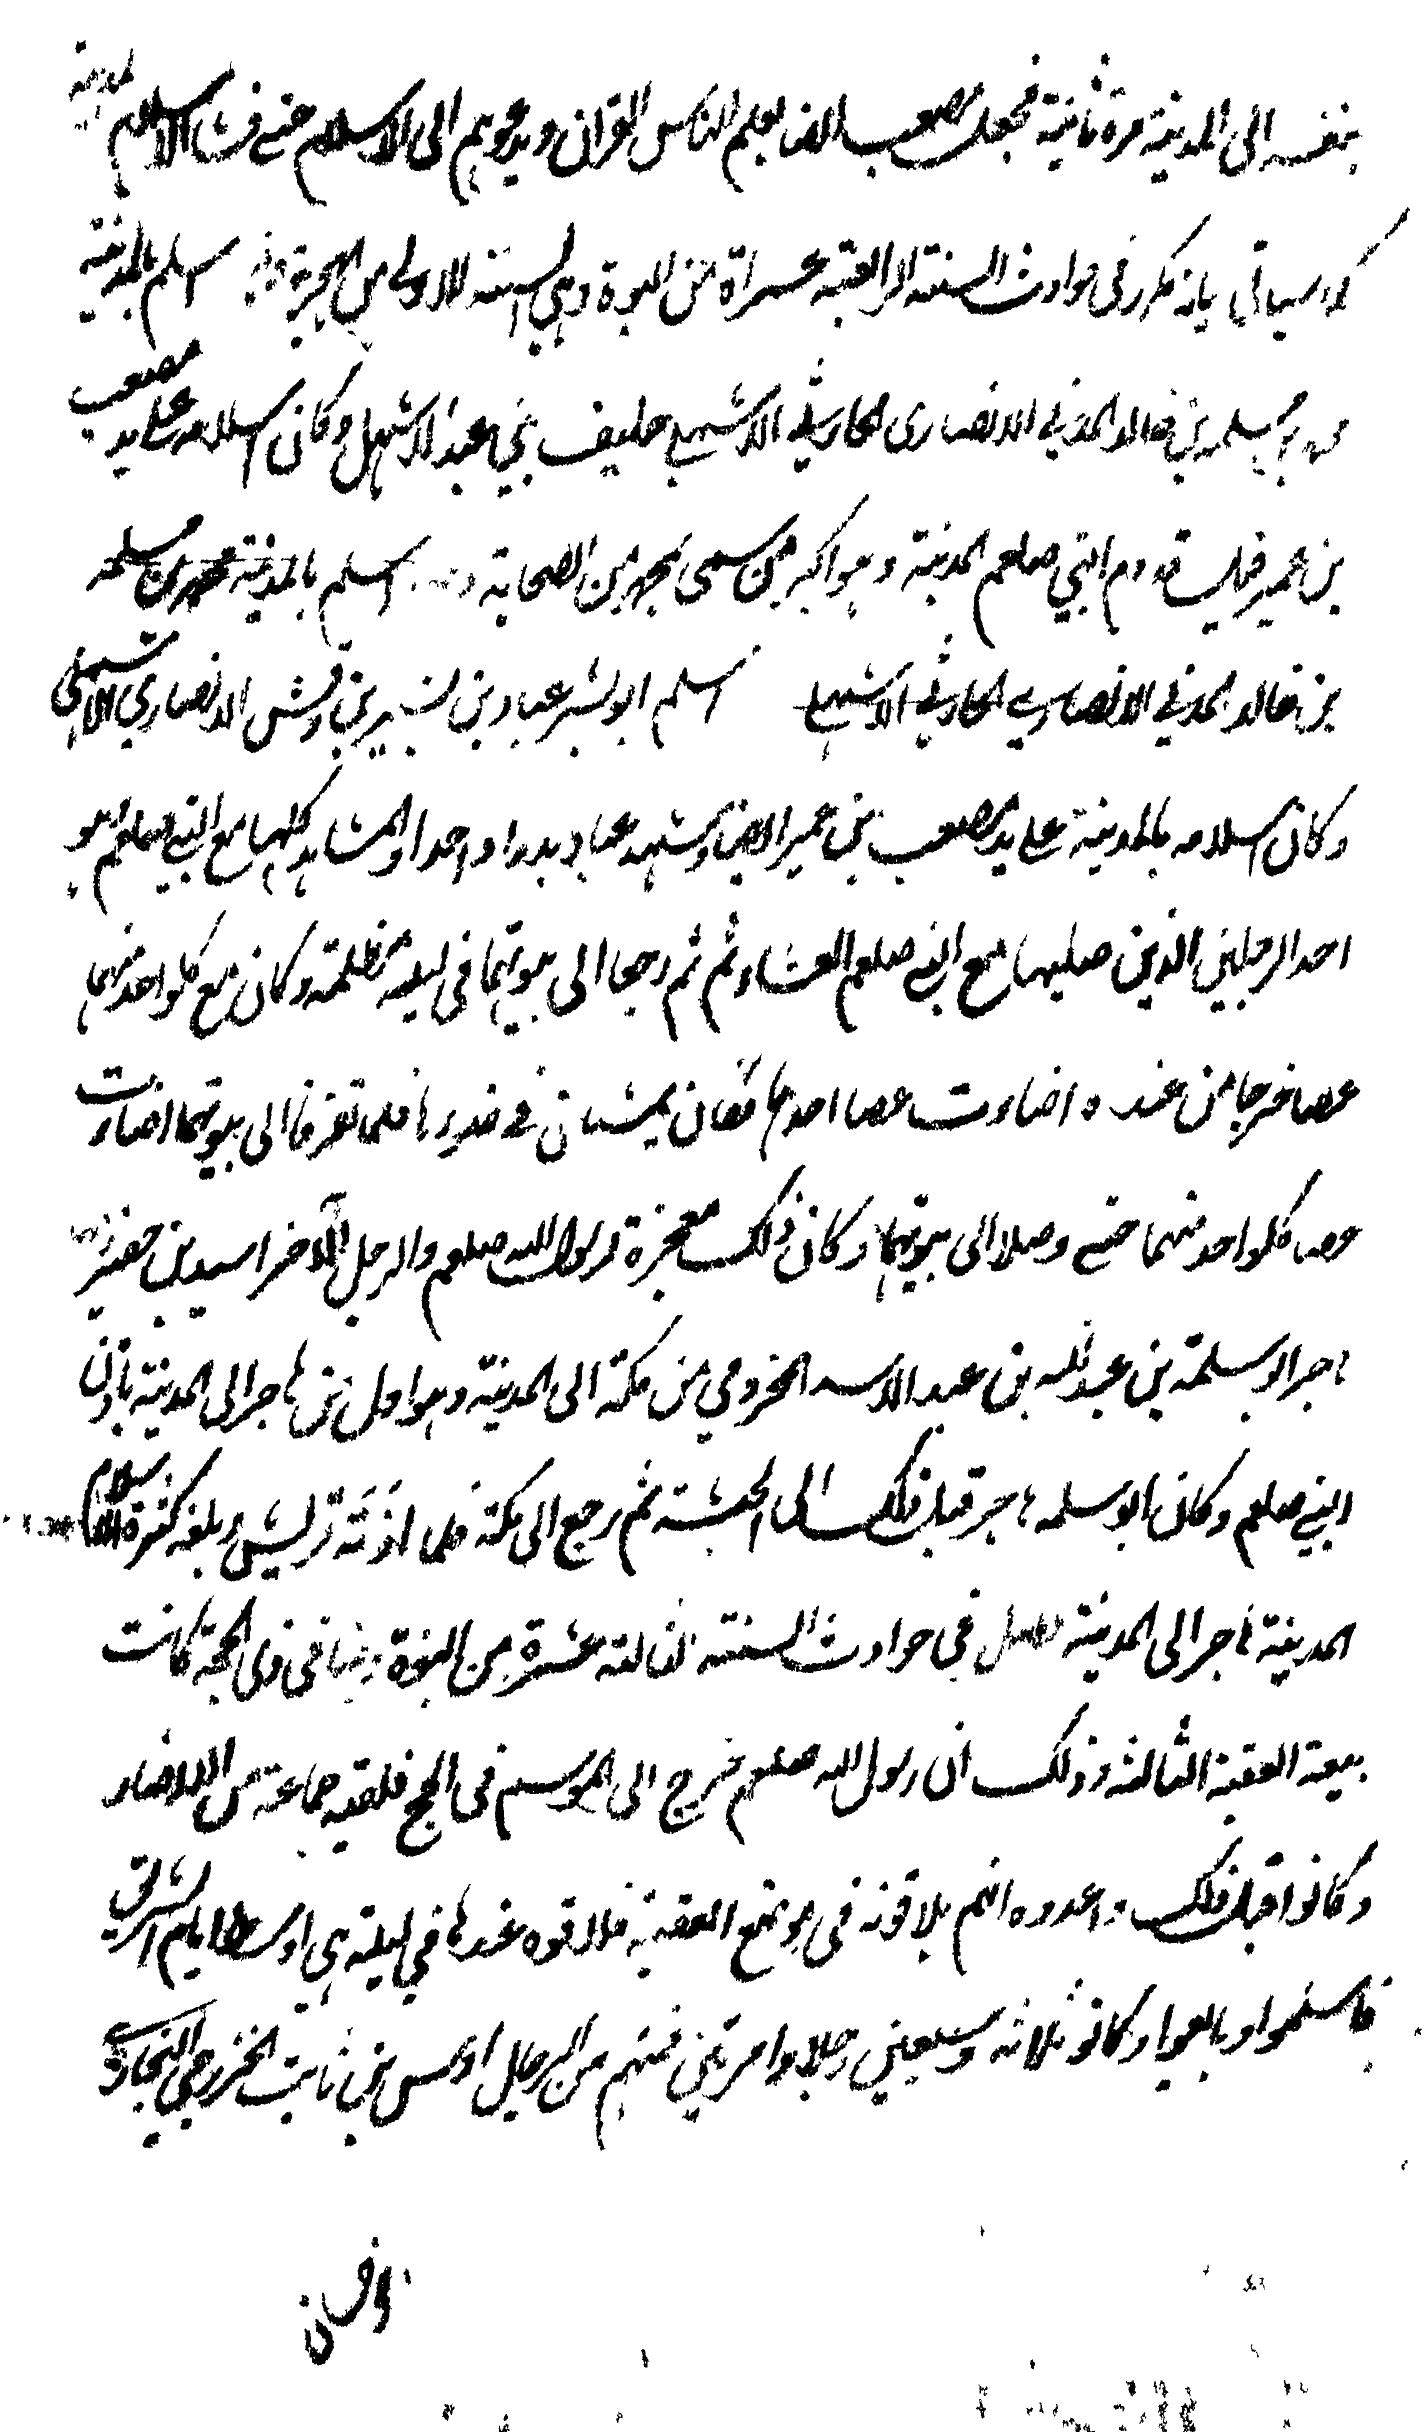 بنفسه الى المدينة مرة ثانية فجعل مصعب ايضا يعلم الناس القران ويدعوهم الى الاسلام حتى فشا الاسلام بالمدينة
كما سياتي بيانه مكرر في حوادث السنة الرابعة عشراة من النبوة وهي السنة الاولى من الهجرة وفيها اسلم بالمدينة
محمد بن مسلمة بن خالد المدني الانصاري الحارثي الاشهلي حليف بني عبد الاشهل وكان اسلامه على يد مصعب
بن عمير قبل قدوم النبي صلعم المدينة وهو اكبر من سمى بمحمد من الصحابة وفيها اسلم بالمدينة محمد بن مسلمه
بن خالد المدني الانصاري الحارثي الاشهلي اسلم ابو بشر عباد بن بشير بن وقش الانصاري الاشهلي
وكان اسلامه بالمدينة على يد مصعب بن عمير ايضا وشهد عباد بدرا واحدا والمشاهد كلها مع النبي صلعم وهو
احد الرجلين الذين صليا مع النبي صلعم العشاء ثم ثم رجعا الى بيوتهما في ليلة مظلمة وكان مع كلواحد منهما
عصا فخرجا من عنده اضاءت عصا احدهما فكان يمشيان في ضوءها فلما تفرقا الى بيوتهما اضاءت
عصا كلواحد منهما حتى وصلا الى بيوتهما وكان ذلك معجزة لرسول الله صلعم والرجل الاخر اسيد بن حضير وفيها
هاجر ابو سلمة بن عبد الله بن عبد الاسد المخزومي من مكة الى المدينة وهو اول من هاجر الى المدينة باذن
النبي صلعم وكان ابو سلمه هاجر قبل ذلك الى الحبشة ثم رجع الى مكة فلما اذته قريش وبلغه كثرة الاسلام
المدينة هاجر الى المدينة فصل في حوادث السنة الثالثة عشرة من النبوة وفيها في ذي الحجة كانت
بيعة العقبة الثالثة وذلك ان رسول الله صلعم خرج الى الموسم في الحج فلقيه جماعة من الانصار
وكانوا قبل ذلك واعدوه انهم يلاقونه في موضع العقبة فلاقوه عندها في ليلة هي اوسط ايام التشريق
فاسلموا وبايعوا وكانوا ثلاثه وسبعين رجلا وامرتين فمنهم من الرجال اوس بن ثابت الخزرجي النجاري